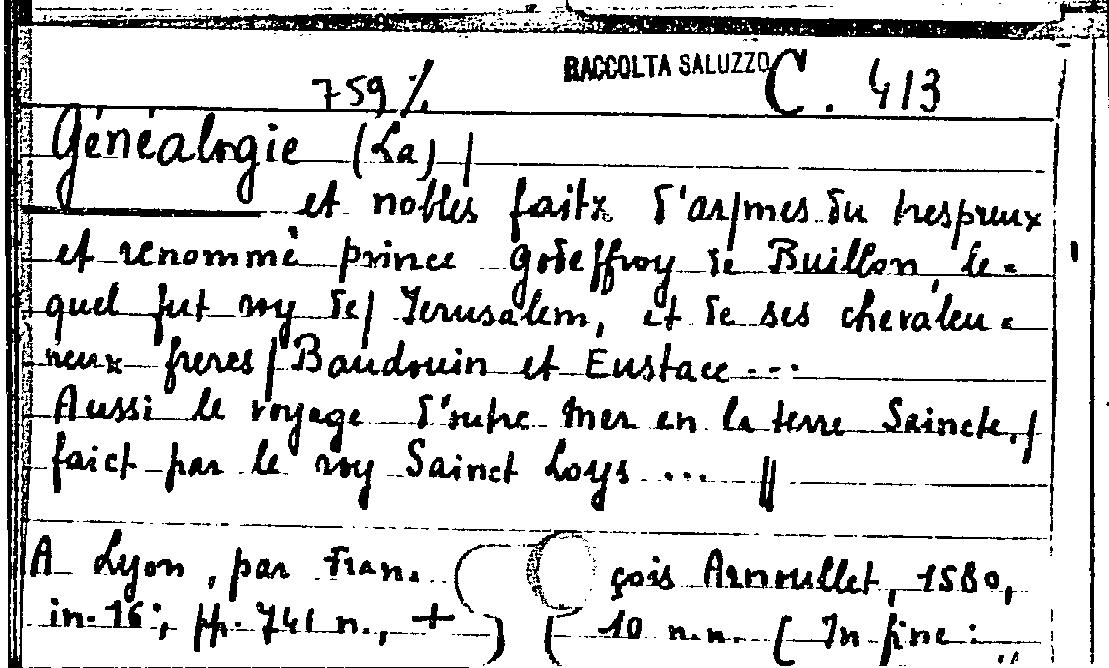 RACCOLTA SALUZZO
759% C. 413
Généalogie (La) |
et nobles faitz d'ar|mes du trespreux
et renommé prince Godeffroy de Buillon, le-
quel fut roy de| Jerusalem, et de ses chevaleu-
reux freres | Baudouin et Eustace ...
Aussi le voyage d'outre mer en la terre Saincte, |
faict par le roy Sainct Loys ... ||
A Lyon, par Fran. çois Arnoullet, 1580,
in-16°; pp. 741 n., + 10 n.n. (In fine: